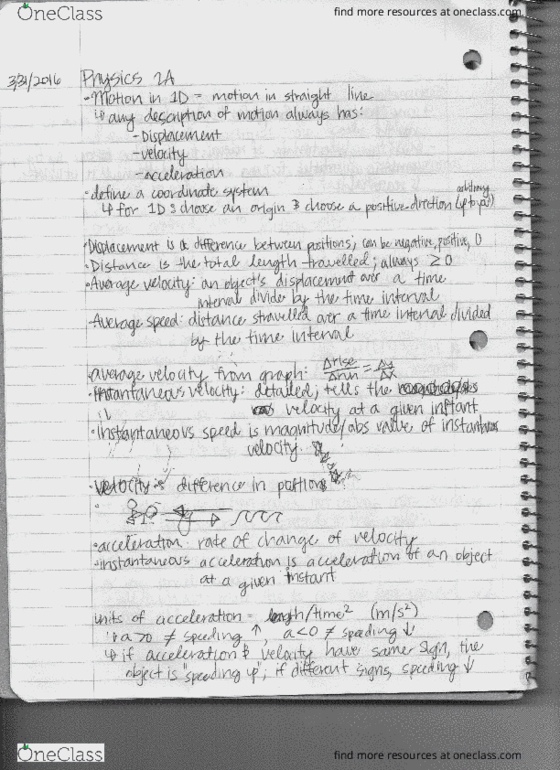 OneClass
find more resources at oneclass.com
3/31/2016 Physics 2A
• Motion in 1D = motion in straight line
↳ any description of motion always has:
- Displacement
- velocity
- acceleration
• define a coordinate system
arbitrary
↳ for 1D: choose an origin & choose a positive direction (up to you)
• Displacement is a difference between positions; can be negative, positive, 0
• Distance is the total length travelled; always ≥ 0
• Average velocity: an object's displacement over a time
interval divide by the time interval
• Average speed: distance travelled over a time interval divided
by the time interval
average velocity from graph: Δrise/Δrun = Δy/Δx
• Instantaneous velocity: detailed; tells the
velocity at a given instant
• Instantaneous speed is magnitude/abs value of instantaneous
velocity
• velocity is difference in position
• acceleration rate of change of velocity
• instantaneous acceleration is acceleration of an object
at a given instant
units of acceleration = length/time² (m/s²)
↳ a>0 ≠ speeding ↑, a<0 ≠ speeding ↓
↳ if acceleration & velocity have same sign, the
object is "speeding up"; if different signs, speeding ↓
OneClass
find more resources at oneclass.com